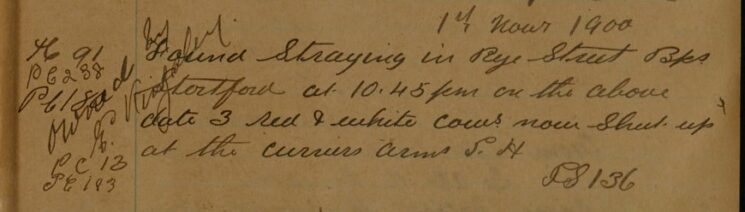 1st Novr 1900
H 91
PC 238
PC 18
Owned by
E
PC 13
PC 193
Found Straying in Rye Street Bps
Stortford at 10.45 pm on the above
date 3 red & white cows now Shut up
at the curriers arms P. H
PS 136